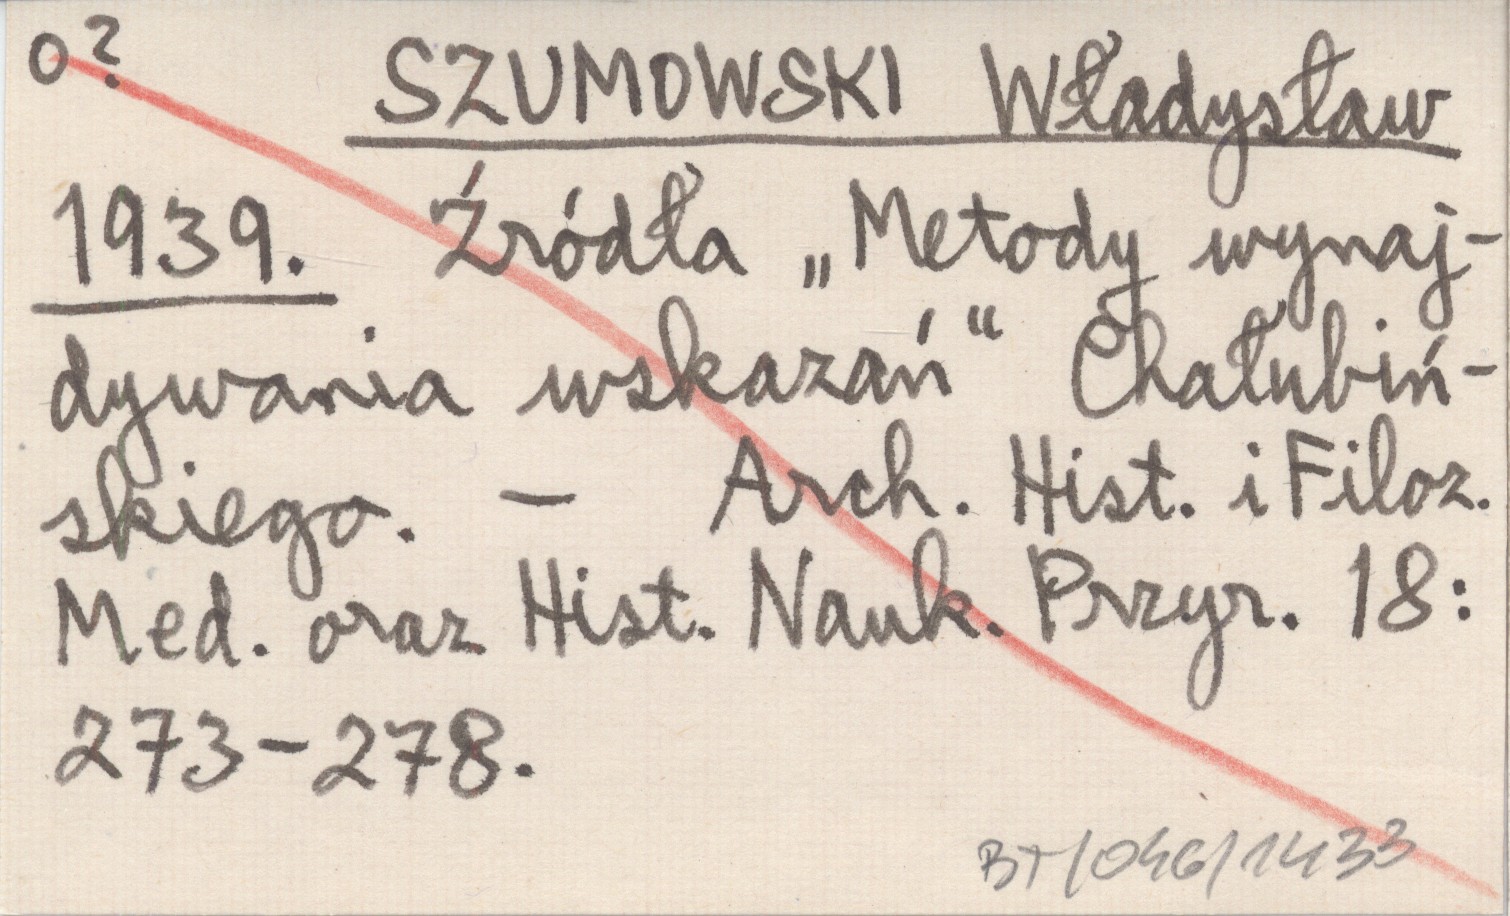 o? SZUMOWSKI Władysław
1939. Źródła „Metody wynaj-
dywania wskazań" Chałubiń-
skiego. — Arch. Hist. i Filoz.
Med. oraz Hist. Nauk. Przyr. 18:
273-278.
BT/046/1433